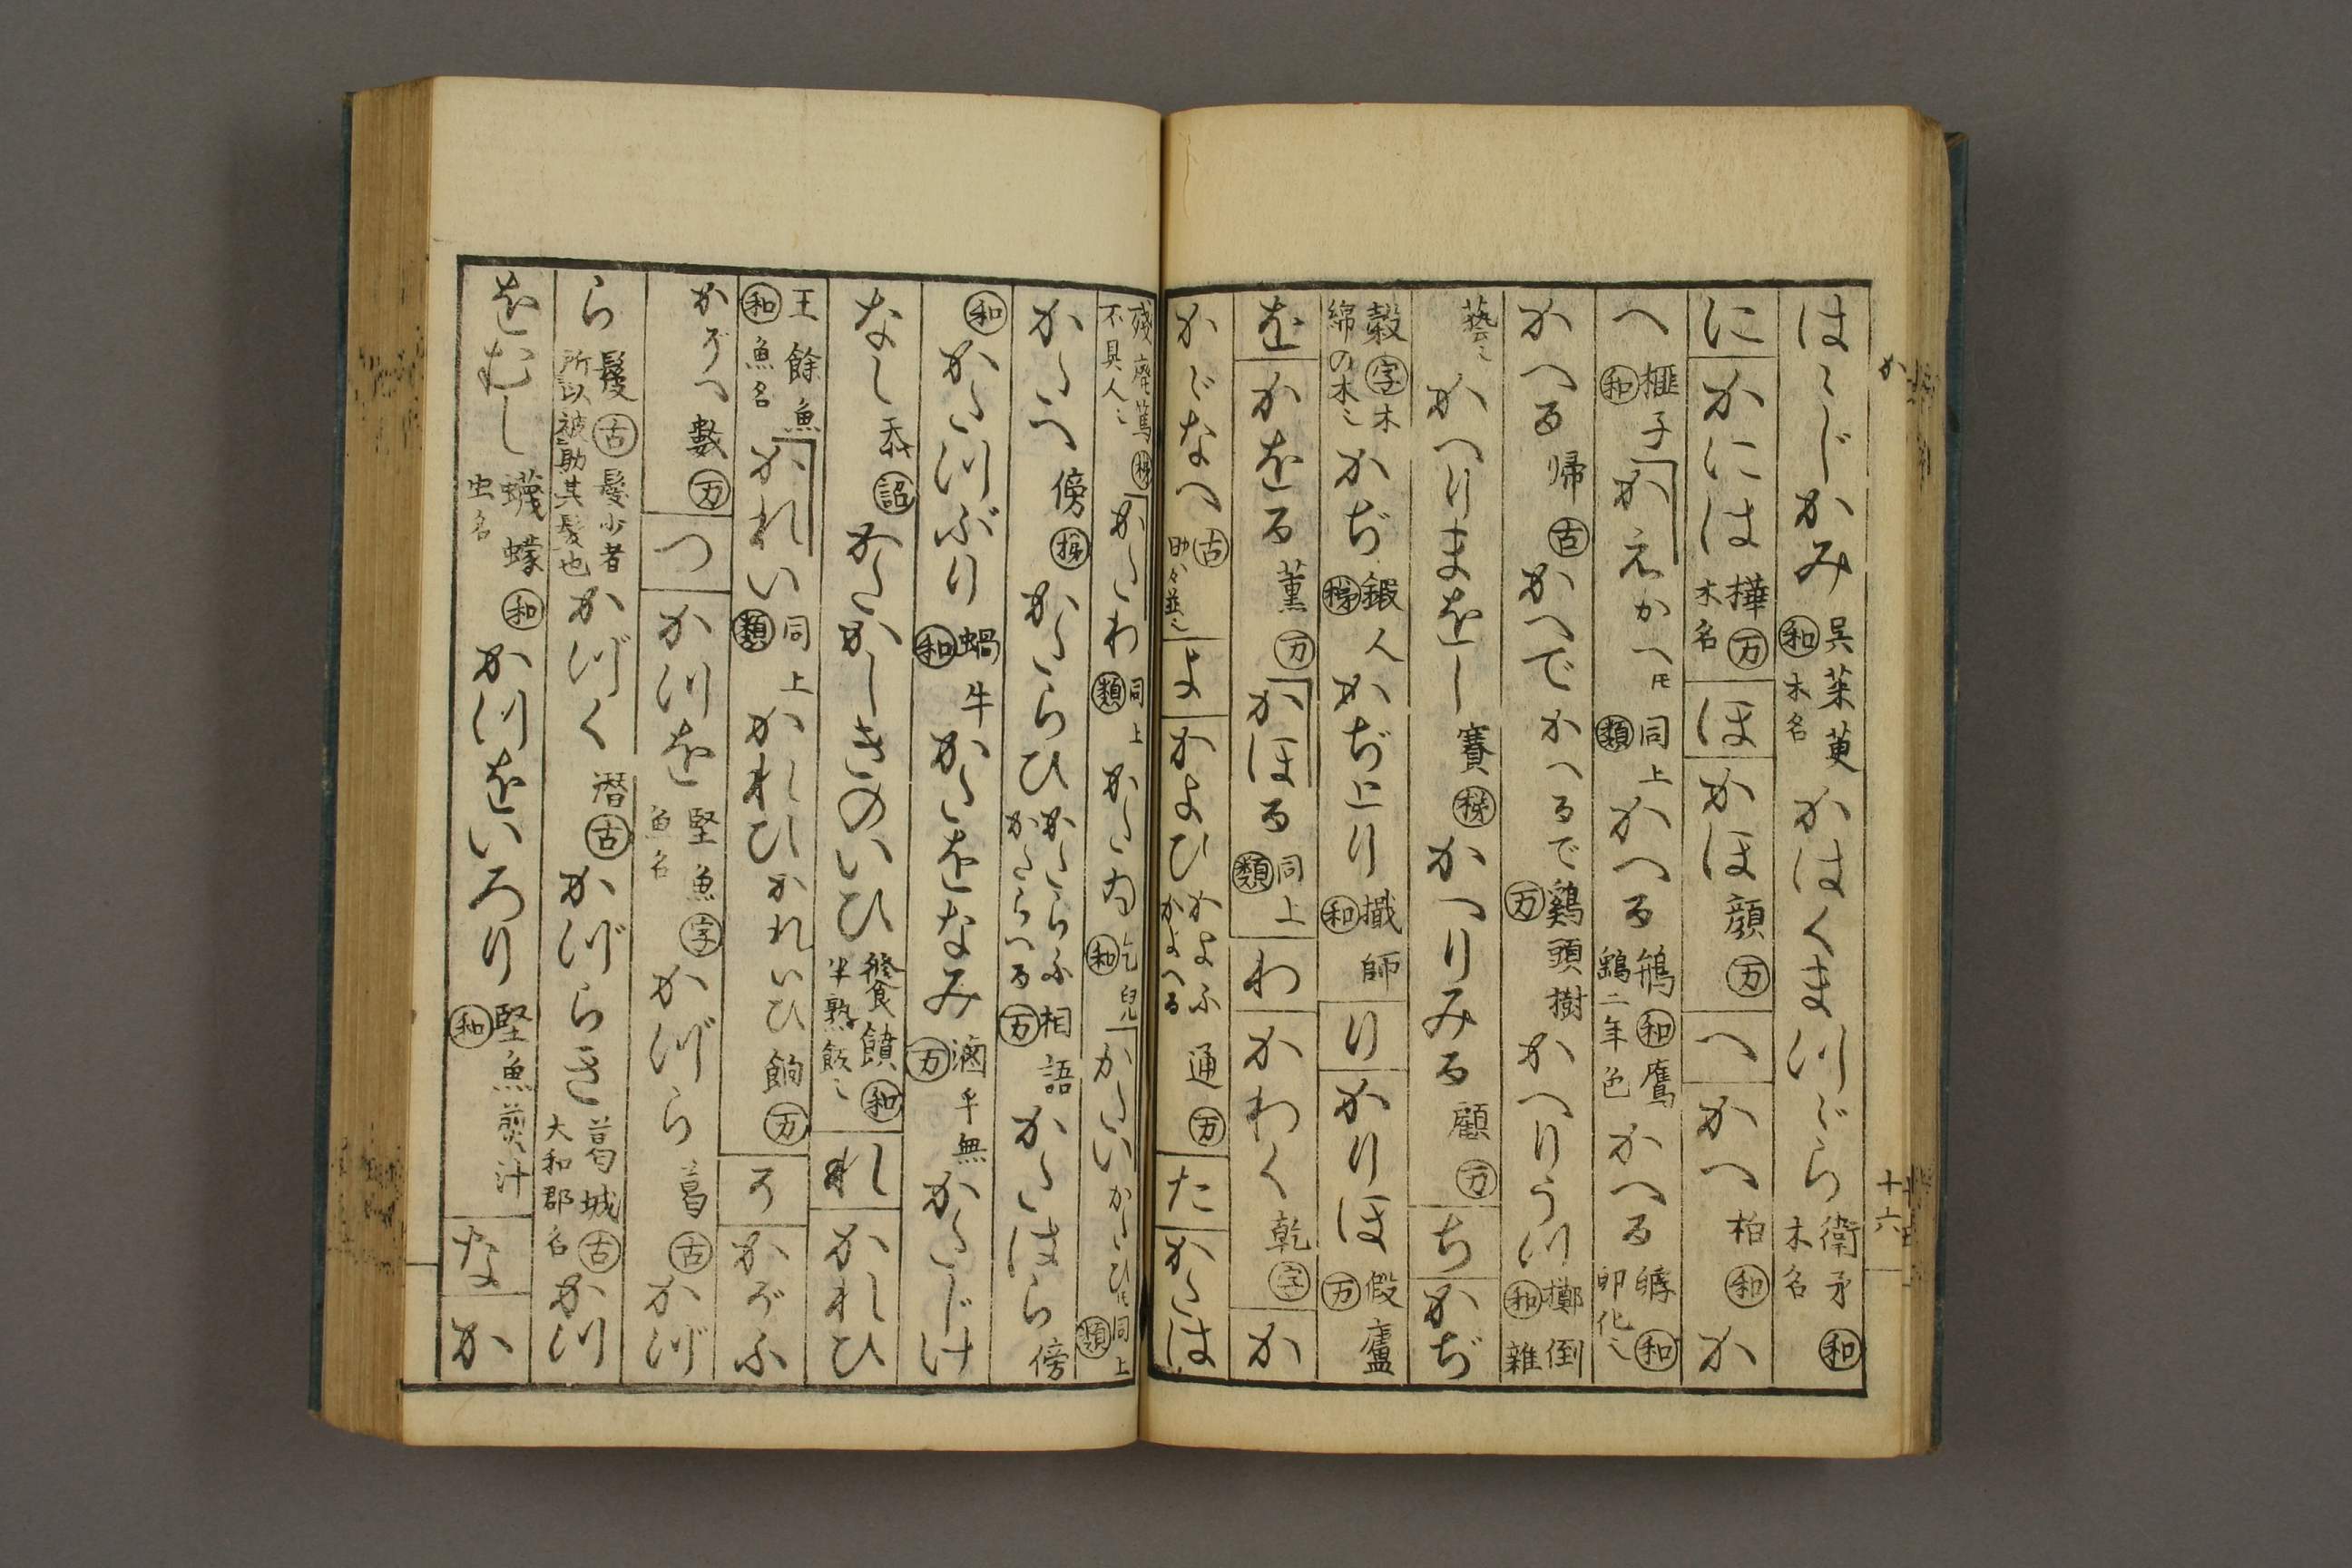 はじかみ 呉茱萸 和 木名 かはくまつゞら 衛矛 和 木名
に かには 樺 万 木名 ほ かほ 顔 万 へ かへ 柏 和 か
へ 榧子 和 かえ かへ𪜈 同上 類 かへる 鴘 和 鷹鷂二年色 かへる 孵 和 卵化〻
かへる 帰 古 かへで かへるで 鷄頭樹 万 かへりうつ 擲倒 和 雜
藝〻 かへりまをし 賽 𣑥 かへりみる 顧 万 ち かぢ
穀 字 木綿の木〻 かぢ 鍛人 かぢとり 㰏師 和 り かりほ 假廬 万
を かをる 薫 万 かほる 同上 類 わ かわく 乾 字 か
かゞなへ 古 よ かよひ かよふ かよへる 通 万 た かたは
残廃篤 不具人〻 かたわ 類 同上 かたゐ 乞兒 和 かたい かたひ𪜈 同上 類
かたへ 傍 かたらひ かたらふ かたらへる 相語 万 かたはら 傍
和 かたつぶり 蝸牛 和 かたをなみ 滷乎無 万 かたじけ
なし 忝 詔 かたかしきのいひ 餴饋 和 半熟飯〻 れ かれひ
王餘魚 和 魚名 かれい 同上 類 かれひ かれいひ 餉 万 そ かぞふ
かぞへ 數 万 つ かつを 堅魚 字 魚名 かづら 葛 古 かづ
ら 鬘 古 髮少者所以被助其髮也 かづく 潜 古 かづらき 葛城 古 大和郡名 かつ
をむし 蠛蠓 和 虫名 かつをいろり 堅魚煎汁 和 な か
か
十六